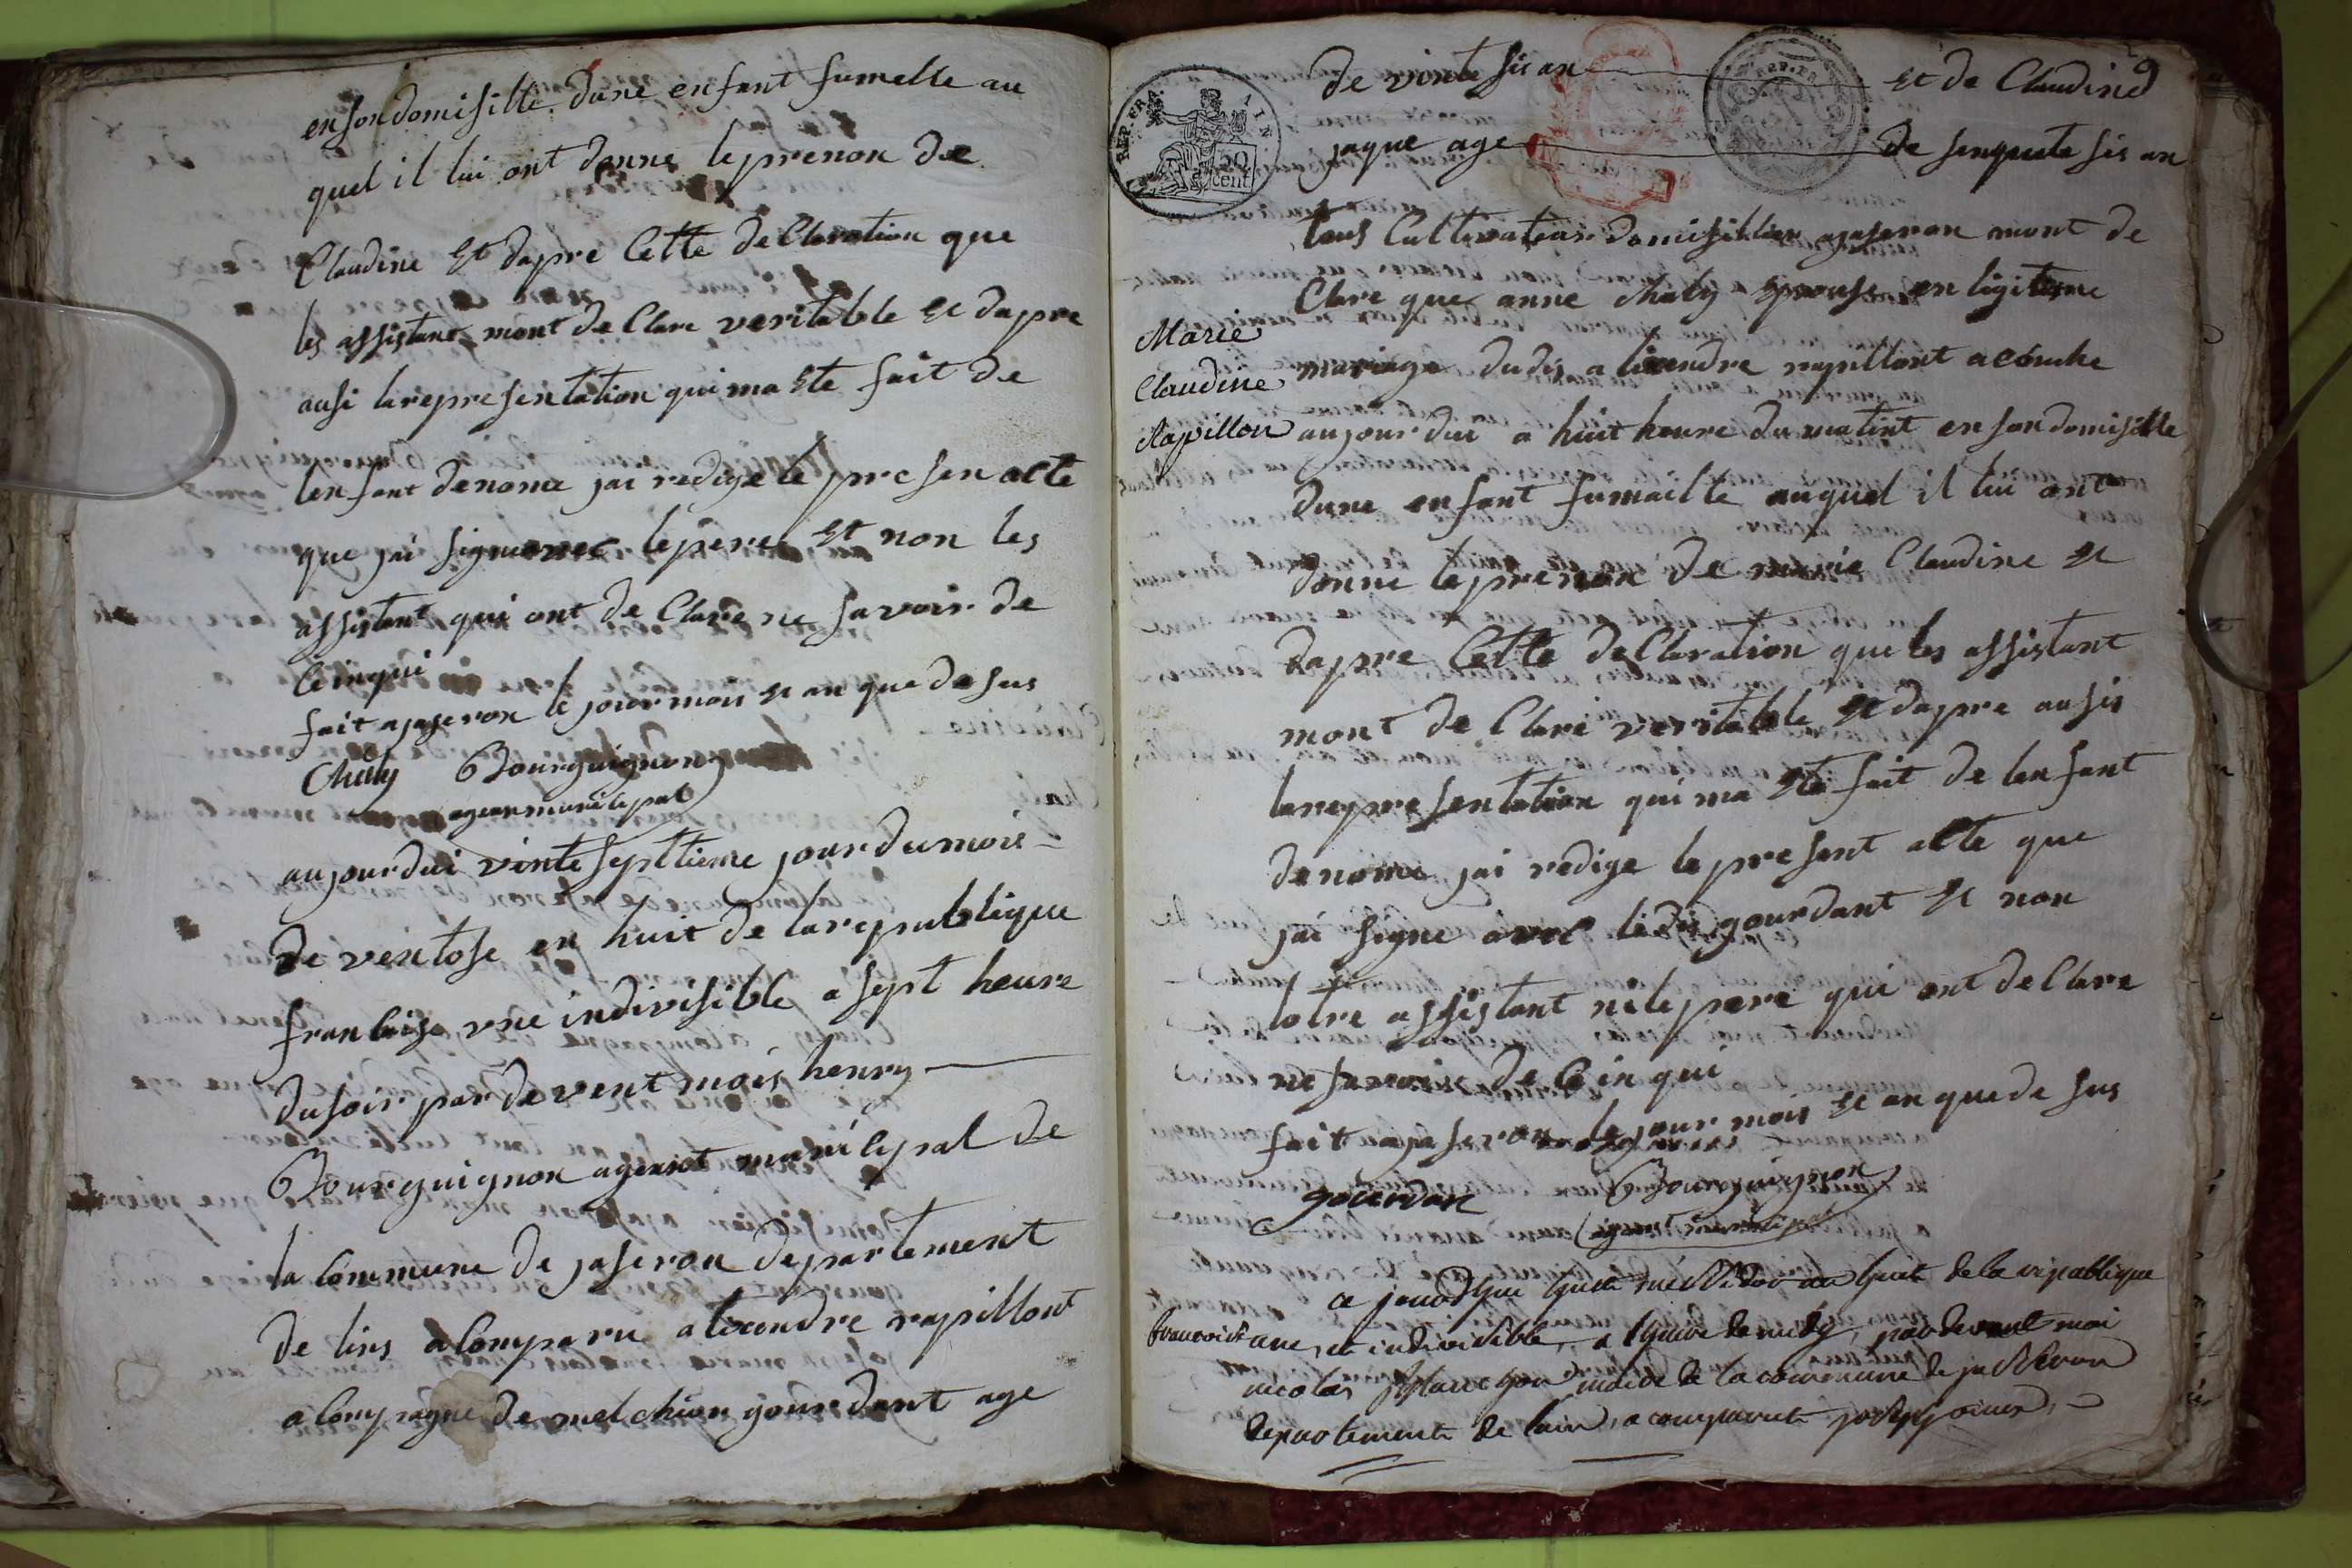 en son domisille dune enfant fumelle au
quel il lui ont donne le prenon de
Claudine et dapre Cette de Claration que
les assistant mont de Clare veritable et dapre
ausi la representation qui ma ete fait de
lenfant denome jai redige le presen acte
que jai signe avec le pere et non les
assistant qui ont de Clare ne savoir de
Ce in qui
fait a jaseron le jour mois et an que de sus
Chaly Bourguignon
agean municipal
aujourdui vinte septieme jour du mois
de ventose en huit de la republique
francaise une indivisible a sept heure
du soir par devent mois henry
Bourguignon ageant municipal de
la Commune de jaseron departement
de lins a Comparu alixendre rapillont
a Compagne de melchion gourdant age
REP. FRA. AIN
50 cent
de vinte sis an et de Claudine
jaque age de senquete sis an
tous Cultivateur domisillier a jaseron mont de
Clare que anne Chaly epouse en ligitime
Marie
Claudine
Rapillon
mariage dudis alixendre rapillont a couche
aujourdui a huit heure du matint en son domisille
dune enfant fumaille auquel il lui ont
donne le prenon de marie Claudine et
dapre Cette de Claration que les assistant
mont de Clare veritable et dapre ausis
la representation qui ma ete fait de lenfant
denome jai redige le present acte que
jai signe avec ledis gourdant et non
lotre assistant ni le pere qui ont de Clare
ne savoir de Ce in qui
fait a jaseron le jour mois et an que de sus
gourdan Bourguignon
agent municipal
de la republique
francoise une, et indivisible, a de midy, pardevant moi
nicolas maire de la commune de jasseron
departement de lain, a comparut